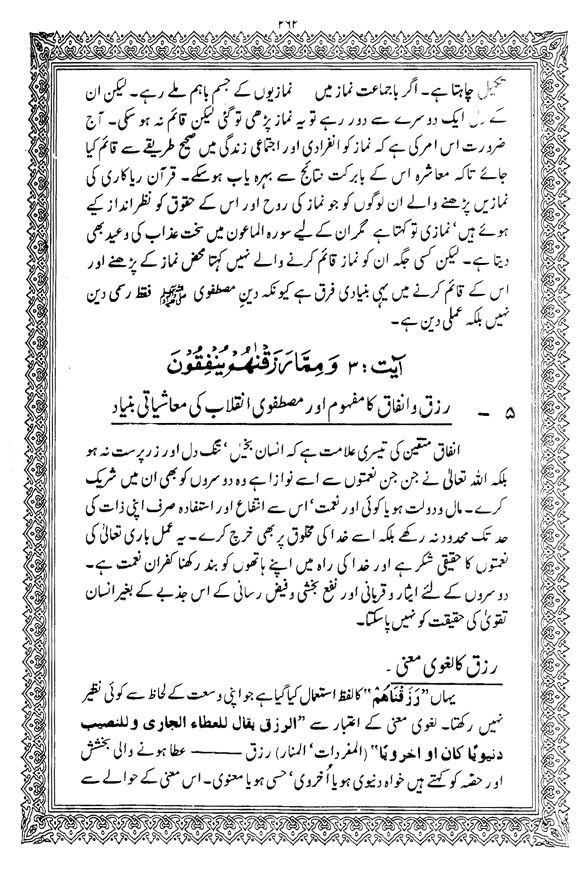 ۲۶۲
تکمیل چاہتا ہے۔ اگر باجماعت نماز میں نمازیوں کے جسم باہم ملے رہے۔ لیکن ان
کے دل ایک دوسرے سے دور رہے تو یہ نماز پڑھی تو گئی لیکن قائم نہ ہو سکی۔ آج
ضرورت اس امر کی ہے کہ نماز کو انفرادی اور اجتماعی زندگی میں صحیح طریقے سے قائم کیا
جائے تاکہ معاشرہ اس کے بابرکت نتائج سے بہرہ یاب ہوسکے۔ قرآن ریاکاری کی
نمازیں پڑھنے والے ان لوگوں کو جو نماز کی روح اور اس کے حقوق کو نظر انداز کیے
ہوئے ہیں‘ نمازی تو کہتا ہے مگر ان کے لیے سورہ الماعون میں سخت عذاب کی وعید بھی
دیتا ہے۔ لیکن کسی جگہ ان کو نماز قائم کرنے والے نہیں کہتا محض نماز کے پڑھنے اور
اس کے قائم کرنے میں یہی بنیادی فرق ہے کیونکہ دینِ مصطفوی ﷺ فقط رسمی دین
نہیں بلکہ عملی دین ہے۔
آیت : ۳ وَمِمَّا رَزَقْنٰهُمْ يُنْفِقُوْنَ
۵ - رزق و انفاق کا مفہوم اور مصطفوی انقلاب کی معاشیاتی بنیاد
انفاق متقین کی تیسری علامت ہے کہ انسان بخیل‘ تنگ دل اور زر پرست نہ ہو
بلکہ اللہ تعالیٰ نے جن جن نعمتوں سے اسے نوازا ہے وہ دوسروں کو بھی ان میں شریک
کرے۔ مال و دولت ہو یا کوئی اور نعمت‘ اس سے انتفاع اور استفادہ صرف اپنی ذات کی
حد تک محدود نہ رکھے بلکہ اسے خدا کی مخلوق پر بھی خرچ کرے۔ یہ عمل باری تعالیٰ کی
نعمتوں کا حقیقی شکر ہے اور خدا کی راہ میں اپنے ہاتھوں کو بند رکھنا کفران نعمت ہے۔
دوسروں کے لئے ایثار و قربانی اور نفع بخشی و فیض رسانی کے اس جذبے کے بغیر انسان
تقویٰ کی حقیقت کو نہیں پاسکتا۔
رزق کا لغوی معنی ۔
یہاں ”رَزَقْنَاهُمْ“ کا لفظ استعمال کیا گیا ہے جو اپنی وسعت کے لحاظ سے کوئی نظیر
نہیں رکھتا۔ لغوی معنی کے اعتبار سے ”الرزق يقال للعطاء الجاری وللنصيب
دنيويًا كان او اخرويًا“ (المفردات‘ المنار) رزق ——— عطا ہونے والی بخشش
اور حصّہ کو کہتے ہیں خواہ دنیوی ہو یا اُخروی‘ حسی ہو یا معنوی۔ اس معنی کے حوالے سے